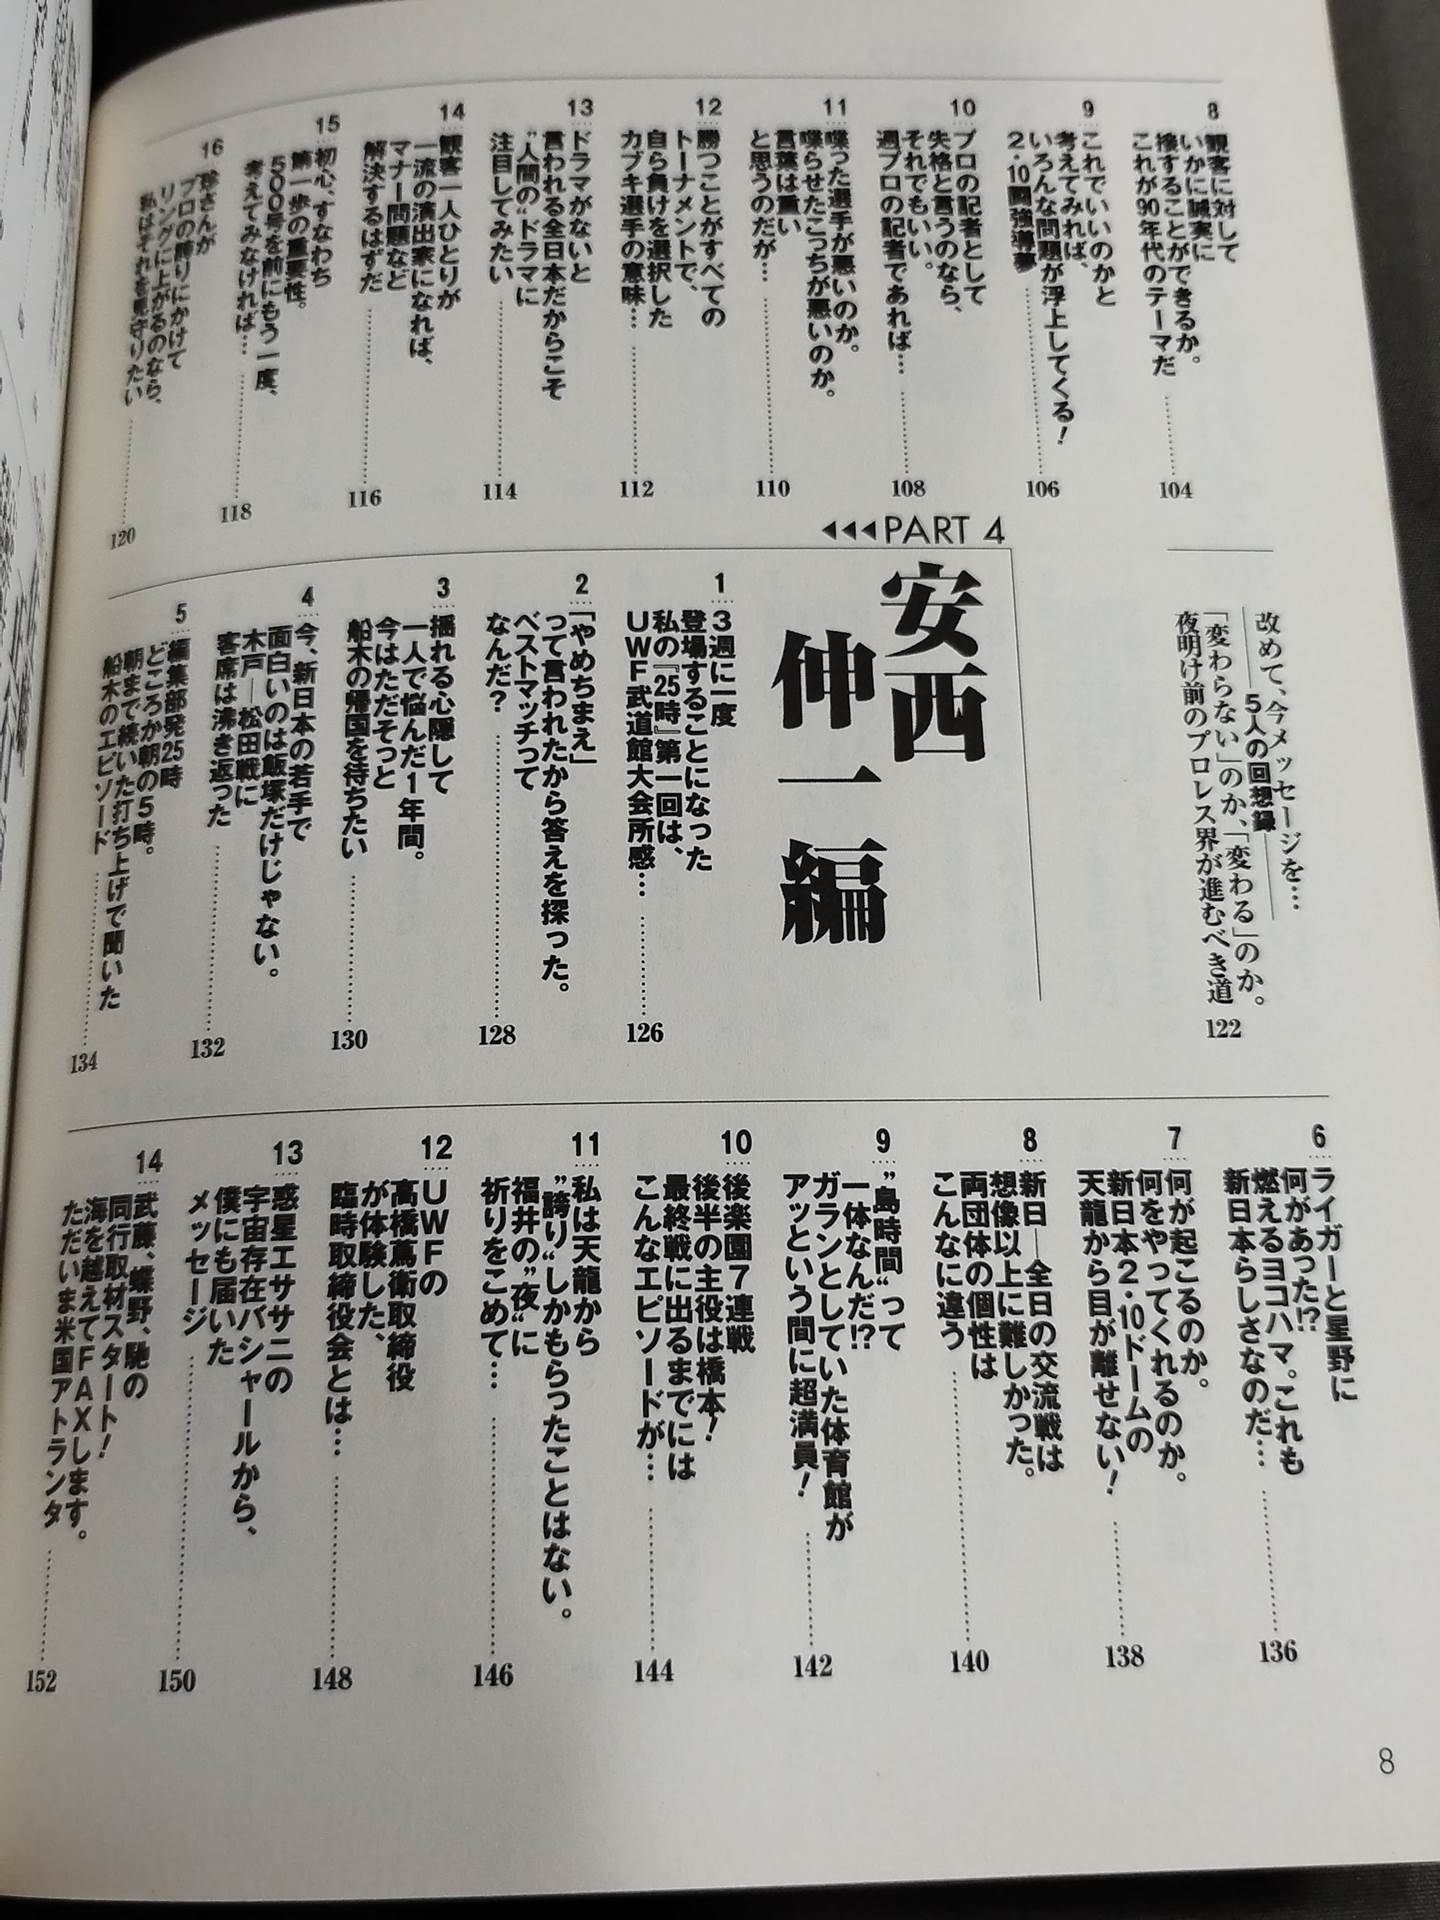 8
観客に対して
いかに誠実に
接することができるか。
これが90年代のテーマだ
104
9
これでいいのかと
考えてみれば、
いろんな問題が浮上してくる！
2・10闘強導夢
106
10
プロの記者として
失格と言うのなら、
それでもいい。
週プロの記者であれば…
108
11
喋った選手が悪いのか。
喋らせたこっちが悪いのか。
言葉は重い
と思うのだが…
110
12
勝つことがすべての
トーナメントで、
自ら負けを選択した
カブキ選手の意味…
112
13
ドラマがないと
言われる全日本だからこそ
"人間の"ドラマに
注目してみたい
114
14
観客一人ひとりが
一流の演出家になれば、
マナー問題など
解決するはずだ
116
15
初心、すなわち
第一歩の重要性。
500号を前にもう一度、
考えてみなければ…
118
16
さんが
プロの誇りにかけて
リングに上がるのなら、
私はそれを見守りたい
120
改めて、今メッセージを…
5人の回想録
「変わらない」のか、「変わる」のか。
夜明け前のプロレス界が進むべき道
122
PART 4
安西
伸一編
1
3週に一度
登場することになった
私の『25時』第一回は、
UWF武道館大会所感…
126
2
「やめちまえ」
って言われたから答えを探った。
ベストマッチって
なんだ？
128
3
揺れる心隠して
一人で悩んだ1年間。
今はただそっと
船木の帰国を待ちたい
130
4
今、新日本の若手で
面白いのは飯塚だけじゃない。
木戸―松田戦に
客席は沸き返った
132
5
編集部発25時
どころか朝の5時。
朝まで続いた打ち上げで聞いた
船木のエピソード
134
6
ライガーと星野に
何があった!?
燃えるヨコハマ。これも
新日本らしさなのだ…
136
7
何が起こるのか。
何をやってくれるのか。
新日本2・10ドームの
天龍から目が離せない！
138
8
新日―全日の交流戦は
想像以上に難しかった。
両団体の個性は
こんなに違う
140
9
"島時間"って
一体なんだ!?
ガランとしていた体育館が
アッという間に超満員！
142
10
後楽園7連戦
後半の主役は橋本！
最終戦に出るまでには
こんなエピソードが…
144
11
私は天龍から
"誇り"しかもらったことはない。
福井の"夜"に
祈りをこめて…
146
12
UWFの
高橋蔦衛取締役
が体験した、
臨時取締役会とは…
148
13
惑星エササニの
宇宙存在バシャールから、
僕にも届いた
メッセージ
150
14
武藤、蝶野、馳の
同行取材スタート！
海を越えてFAXします。
ただいま米国アトランタ
152
8